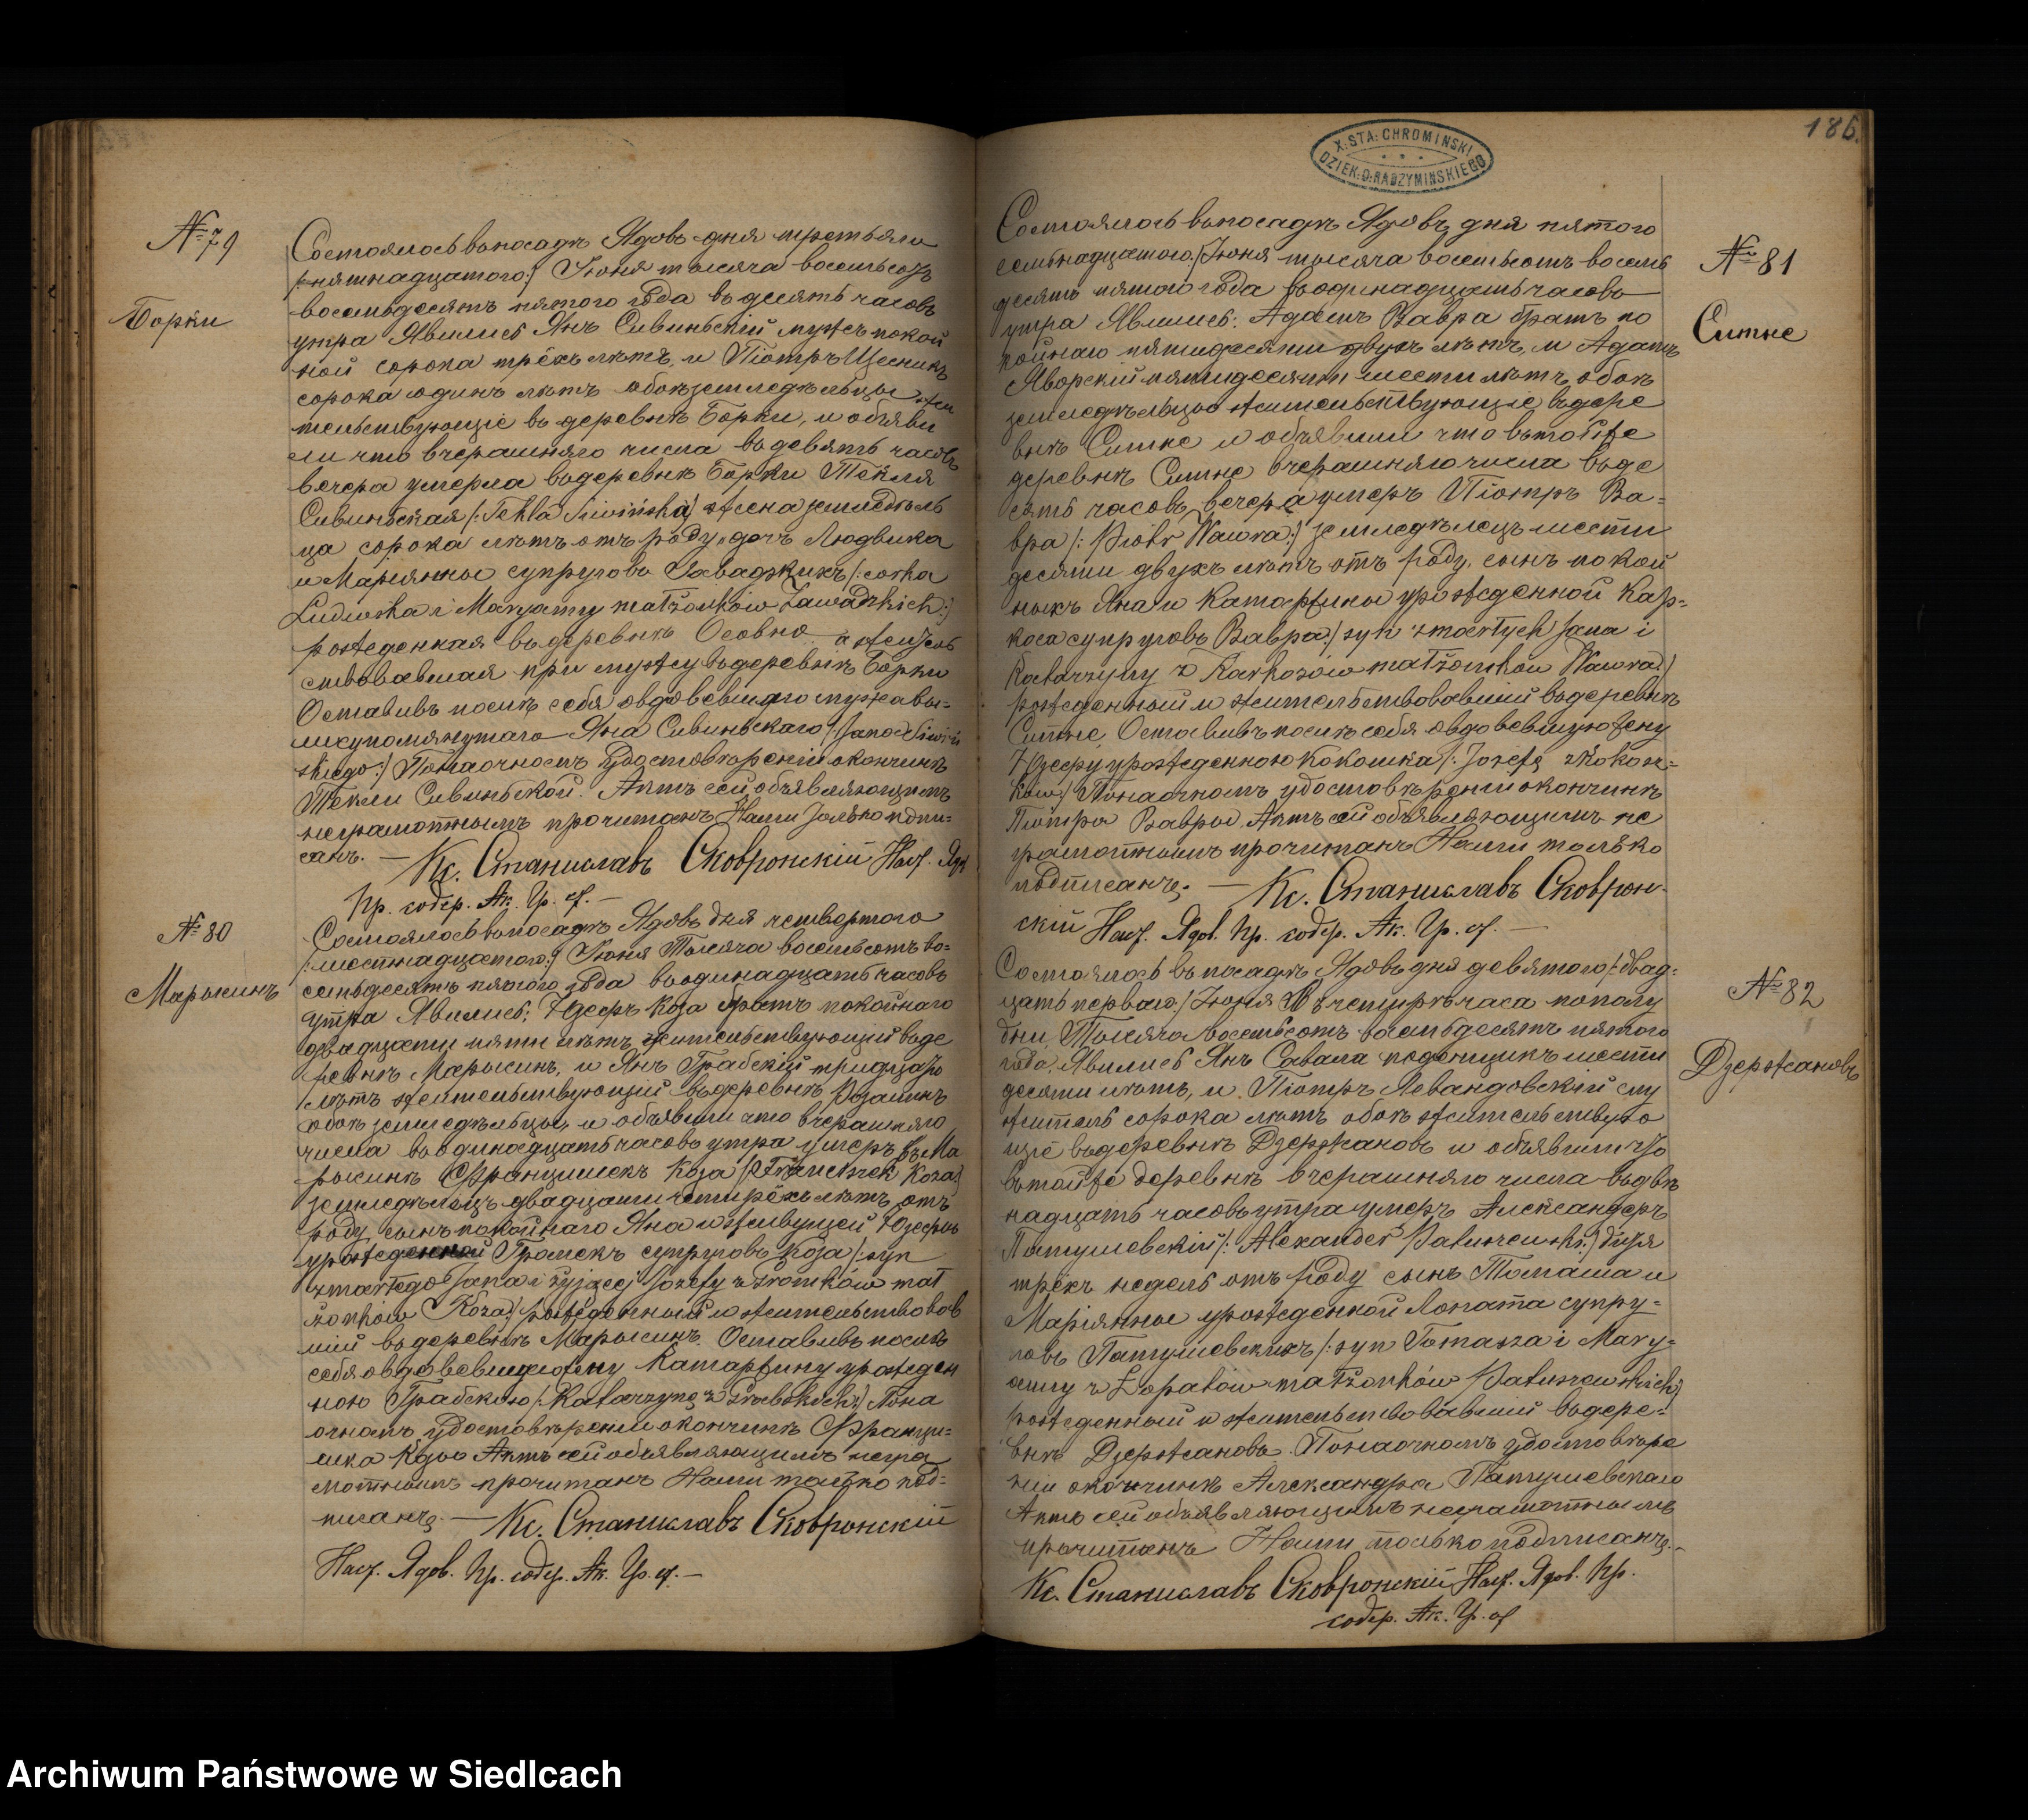 № 79
Борки
Состоялось въ посадѣ Ядовъ дня третьяго
/:пятнадцатого:/ Іюня тысяча восемьсотъ
восемьдесятъ пятого года въ десять часовъ
утра Явились Янъ Сивиньскій мужъ покой
ной сорока трёхъ лѣтъ, и Піотръ Щесникъ
сорока одинъ лѣтъ обои земледѣльцы жи
тельствующіе въ деревнѣ Борки, и объяви
ли что вчерашняго числа въ девять часовъ
вечера умерла въ деревнѣ Борки Текля
Сивиньская /:Tekla Siwińska:/ жена земледѣль
ца сорока лѣтъ отъ роду, дочь Людвика
и Маріянны супруговъ Завадзкихъ /:corka
Ludwika i Maryanny małżonków Zawadzkich:/
рожденная въ деревнѣ Осовно а житель
ствовавшая при мужу въ деревнѣ Борки
Оставивъ послѣ себя овдовевшаго мужа вы=
шеупомянутаго Яна Сивиньскаго /:Jana Siwiń
skiego:/ По наочномъ удостовѣреніи о кончинѣ
Текли Сивиньской. Актъ сей объявляющимъ
неграмотнымъ прочитанъ Нами только подпи=
санъ. — Кс. Станиславъ Сковронскій Наст. Яд.
Пр. содер. Ак. Гр. с"
№ 80
Марысинъ
Состоялось въ посадѣ Ядовъ дня четвертого
/:шестнадцатого:/ Іюня Тысяча восемьсотъ во=
семьдесятъ пятого года въ одинадцать часовъ
утра Явились: Юзефъ Коза братъ покойнаго
двадцати пяти лѣтъ жительствующій въ де
ревнѣ Марысинъ, и Янъ Грабскій тридцать
лѣтъ жительствующій въ деревнѣ
обои земледѣльцы, и объявили что вчерашняго
числа въ одинадцать часовъ утра умеръ въ Ма
рысинѣ Францишекъ Коза /:Franciszek Koza:/
земледѣлецъ двадцати четырёхъ лѣтъ отъ
роду, сынъ покойнаго Яна и живущей Юзефы
урожденной Тронекъ супруговъ Коза /:syn
zmarłego Jana i żyjącej Jozefy z Tronków mał
żonków Koza:/ рожденный и жительствовав
шій въ деревнѣ Марысинъ. Оставивъ послѣ
себя овдовевшую жену Катаржину урожден
ною Грабскою /:Katarzynę z Grabskich:/ По на
очномъ удостовѣреніи о кончинѣ Франци=
шка Козы Актъ сей объявляющимъ негра
мотнымъ прочитанъ Нами только под=
писанъ. — Кс. Станиславъ Сковронскій
Наст. Ядов. Пр. содер. Ак. Гр. с. —
186.
X. STA. CHROMIŃSKI
DZIEK. D. RADZYMIŃSKIEGO
№ 81
Ситне
Состоялось въ посадѣ Ядовъ дня пятого
/:семьнадцатого:/ Іюня тысяча восемьсотъ восемь
десятъ пятого года въ одинадцать часовъ
утра Явились: Адамъ Вавра братъ по
койнаго пятидесяти двухъ лѣтъ, и Адамъ
Яворскій пятидесяти шести лѣтъ обои
земледѣльцы жительствующіе въ дере
внѣ Ситне и объявили что въ той же
деревнѣ Ситне вчерашняго числа въ де
сять часовъ вечера умеръ Піотръ Ва=
вра /:Piotr Wawra:/ земледѣлецъ шести
десяти двухъ лѣтъ отъ роду, сынъ покой
ныхъ Яна и Катаржины урожденной Кар=
коса супруговъ Вавра /:syn zmarłych Jana i
Katarzyny z Karkosów małżonków Wawra:/
рожденный и жительствовавшій въ деревнѣ
Ситне, Оставивъ послѣ себя овдовевшую жену
Юзефу урожденною Кокошка /:Jozefę z Kokosz=
ków:/ По наочномъ удостовѣреніи о кончинѣ
Піотра Вавры. Актъ сей объявляющимъ не
грамотнымъ прочитанъ Нами только
подписанъ. — Кс. Станиславъ Сковрон=
скій Наст. Ядов. Пр. содер. Ак. Гр. с. —
№ 82
Држежановъ
Состоялось въ посадѣ Ядовъ дня девятого /:двад=
цать перваго:/ Іюня въ четыре часа пополу
дни, Тысяча восемьсотъ восемьдесятъ пятого
года, Явились Янъ Савала поденщикъ шести
десяти лѣтъ, и Піотръ Левандовскій слу
житель сорока лѣтъ обои жительствую
щіе въ деревнѣ Дзержановъ и объявили что
въ той же деревнѣ вчерашняго числа въ двѣ
надцать часовъ утра умеръ Александеръ
Патушевскій /:Alexander Patuszewski:/ дитя
трёхъ недель отъ роду сынъ Томаша и
Маріянны урожденной Лопата супру=
говъ Патушевскихъ /:syn Tomasza i Mary=
anny z Łopatów małżonków Patuszewskich:/
рожденный и жительствовавшій въ дере=
внѣ Дзержановъ. По наочномъ удостовѣре
ніи о кончинѣ Александра Патушевскаго
Актъ сей объявляющимъ неграмотнымъ
прочитанъ Нами только подписанъ. —
Кс. Станиславъ Сковронскій Наст. Ядов. Пр.
содер. Ак. Гр. с
Archiwum Państwowe w Siedlcach